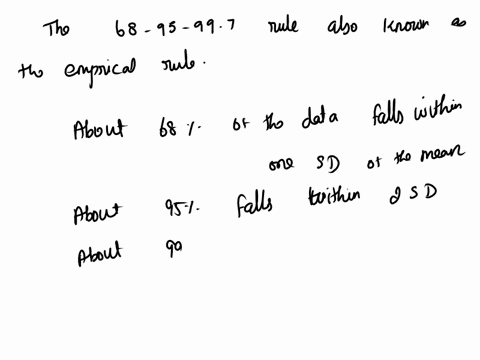 The 68-95-99.7 rule also known as
the emprical rule.
About 68% of the data falls within
one SD of the mean
About 95% falls within 2 SD
About 99